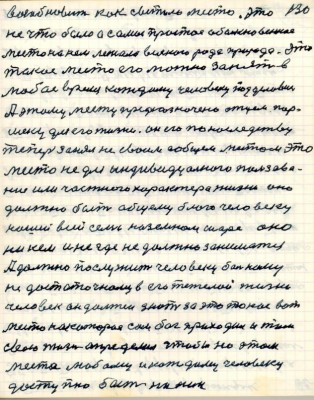 возобновит как святыль место. Это 130
не что было а самое простое обыкновенное
место на нем лежала всякого рода природа. Это
такое место его можно занять в
любое время каждому человеку под условии
А этому месту предназначено отцем Пор-
шеку для его жизни. он его по последству
теперь занял не своим а общем местом Это
место не для индивидуалного ползова-
ние или частного характера жизни оно
должно быть общему благо человеку
нашей всей семь на земном шаре оно
ни кем и не где не должно заниматся
А должно послужит человеку
не достаточному в его тяжелой жизни
человек он должен знать за это то как вот
место на которое сам бог приходил и там
свою жизнь определил чтобы на этом
месте любому и каждому человеку
доступно быть на нем